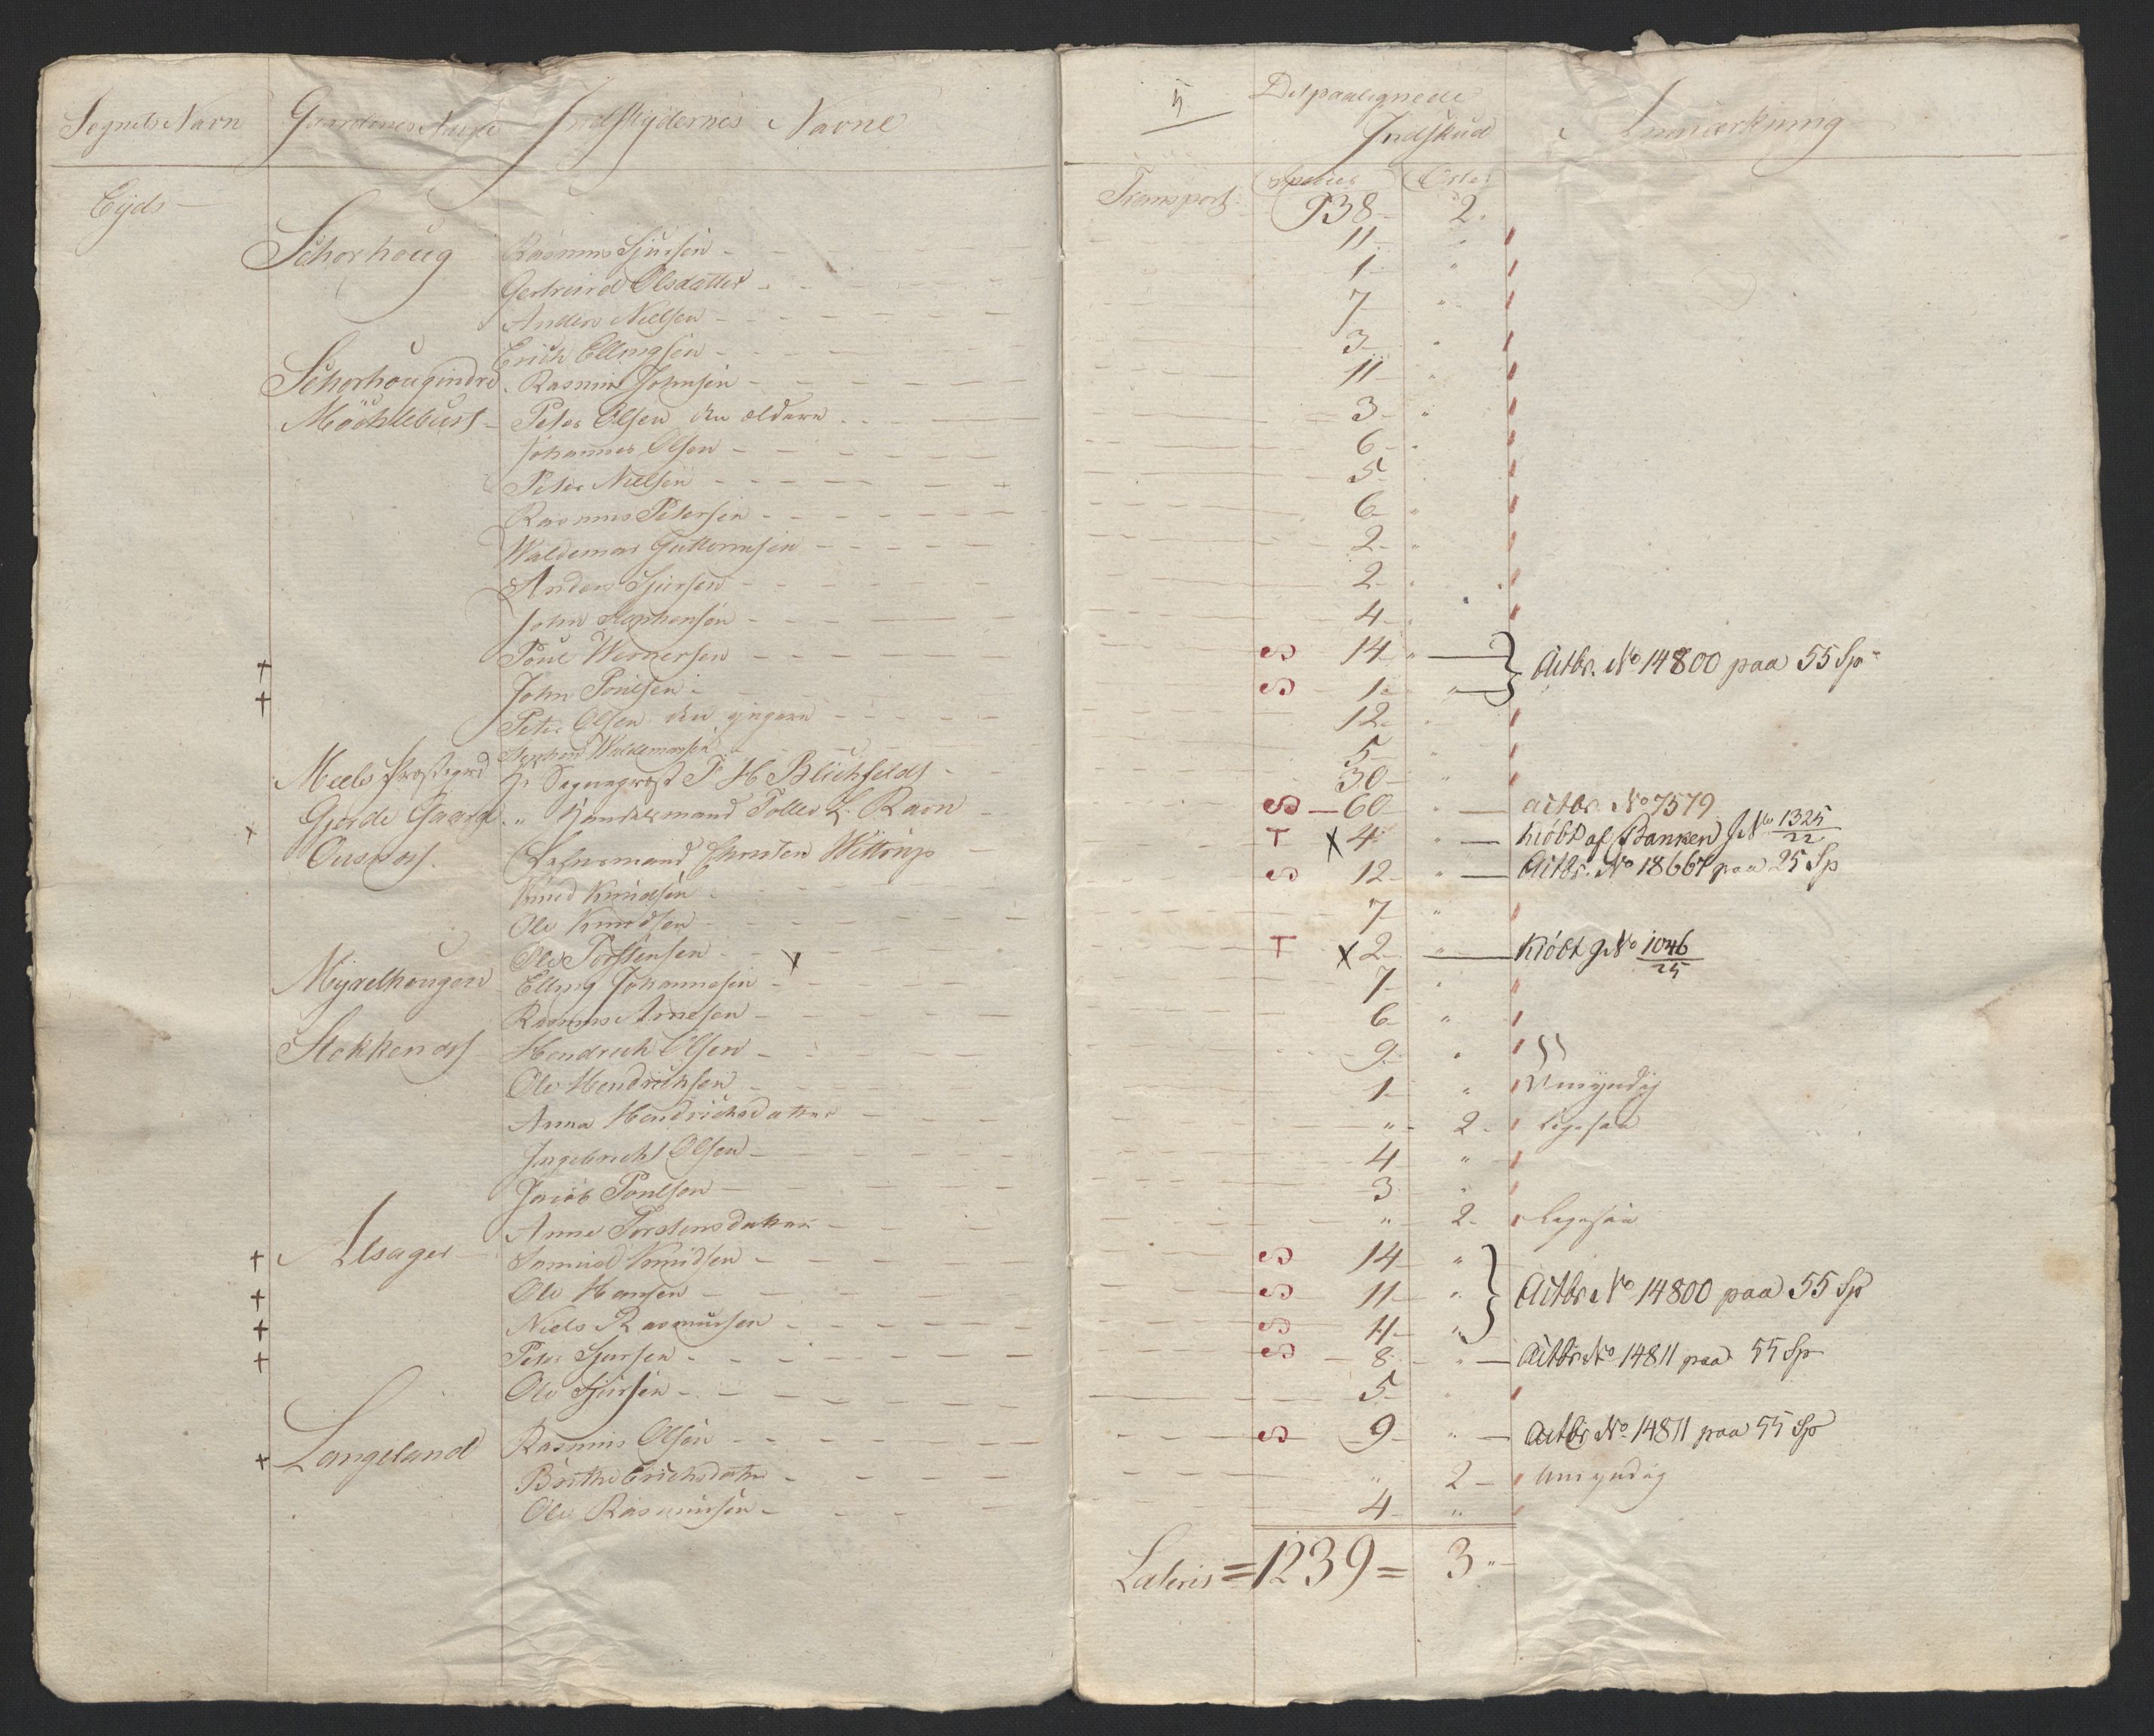 Sognets Navn Gaardenes Navne Indskydernes Navne
Eyds
Schorhoug Rasmus Sjursen
Gertruud Olsdatter
Anders Nielsen
Erich Ellingsen
Schorhougindre Rasmus Johnsen
Möchlebust Peter Olsen den ældere
Johannes Olsen
Peter Nielsen
Rasmus Petersen
Waldemar Guttormsen
Anders Sjursen
John Stephensen
+ Poul Wernersen
+ John Poulsen
Peter Olsen den yngere
Stephen Waldemarsen
Meels Præstegrd Hr Sogneprest P H Blichfeldt
Gjerde Gaard " Handelsmand Toller L. Ravn
x Ousdas Lehnsmand Christen Wittrup
Knud Knudsen
Ole Knudsen
Ole Torstensen x
Myrelhougen Elling Johannesen
Rasmus Arnesen
Stokkenæs Hendrich Olsen
Ole Hendrichsen
Anna Hendrichsdatter
Ingebricht Olsen
Jacob Poulsen
Anne Torstensdatter
+ Alsager Samuel Knudsen
+ Ole Hansen
+ Niels Rasmusen
+ Peter Sjursen
Ole Sjursen
+ Langeland Rasmus Olsen
Brithe Erichsdatter
Ole Rasmusen
5 Det paalignede Indskud Anmærkning
Species Orter
Transport: 938 2
11 "
1 "
7 "
3 "
11 "
3 "
6 "
5
6 "
2 "
2 "
4 "
S 14 " Actbr. No 14800 paa 55 Sp
S 1 "
12 "
5 "
30 "
S 60 " actbr. No 7579
T x 4 " Kiöbt af Banken J No 1325/22
S 12 " Actbr. No 18667 paa 25 Sp
7 "
T x 2 " Kiöbt J No 1046/25
7 "
6 "
9 "
1 " Umyndig
" 2 Ligesaa
4 "
3 "
" 2 Ligesaa
S 14 "
S 11 " Actbr No 14800 paa 55 Sp
S 11 "
S 8 " Actbr No 14811 paa 55 Sp
5 "
S 9 " Actbr No 14811 paa 55 Sp
" 2 Umyndig
4 "
Lateris = 1239 = 3 "